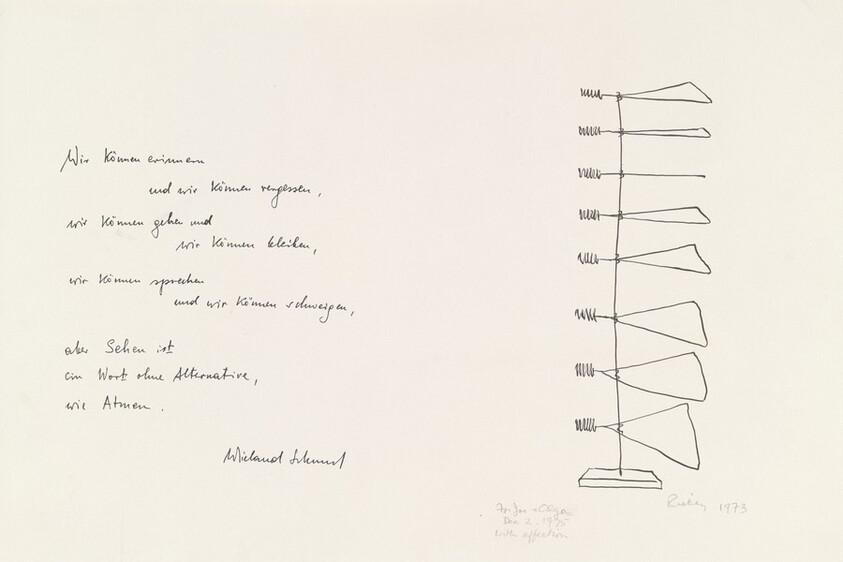 Wir können erinnern
und wir können vergessen,
wir können gehen und
wir können bleiben,
wir können sprechen
und wir können schweigen,
aber Sehen ist
ein Wort ohne Alternative,
wie Atmen.
Wieland Schmied
Rickey 1973
For Jos + Olga
Dec 2. 1975
with affection